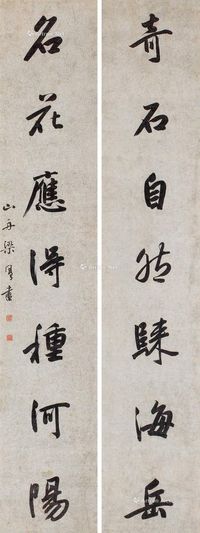 奇石自然歸海岳
名花應得種河陽
山舟梁同書